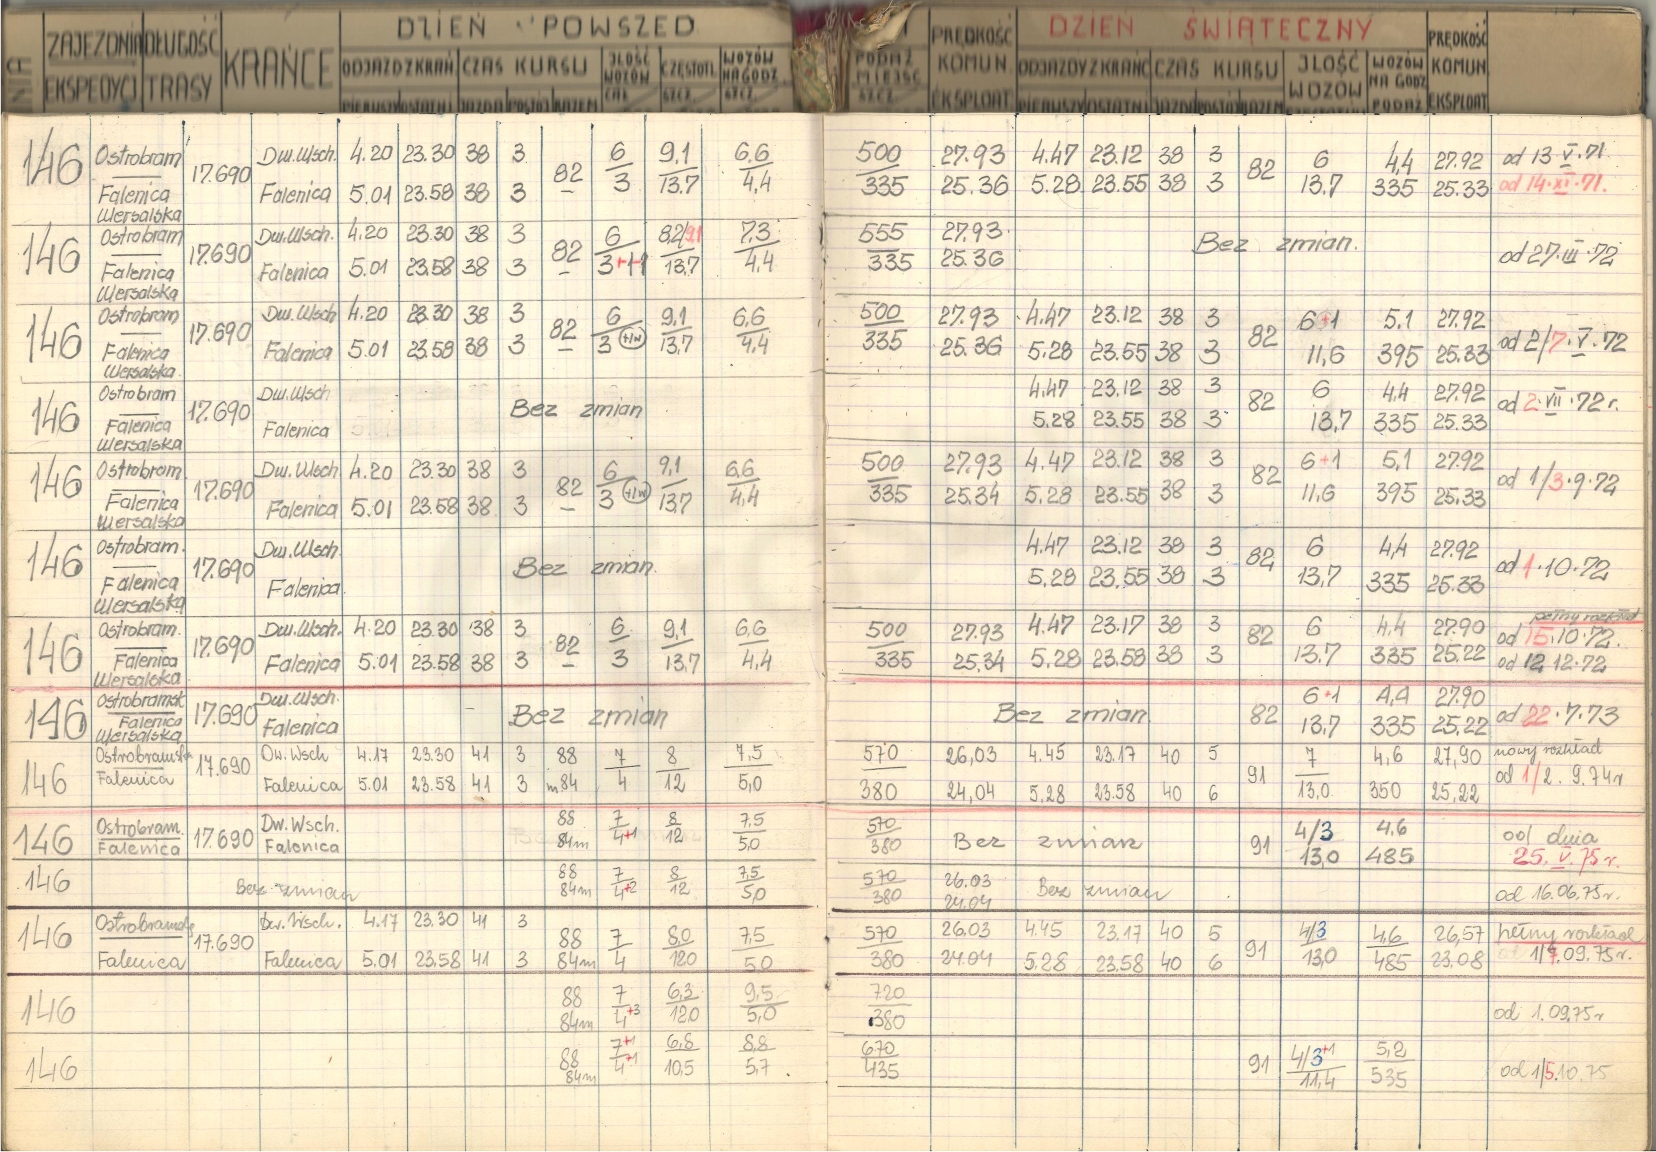 ZAJEZDNIA DŁUGOŚĆ KRAŃCE DZIEŃ POWSZED
EKSPEDYCJ TRASY ODJAZD Z KRAŃ CZAS KURSU ILOŚĆ WOZÓW CZĘSTOTL WOZÓW NA GODZ.
PIERWSZY OSTATNI JAZDA POSTÓJ RAZEM SZCZ. SZCZ.
PODAŻ MIEJSC SZCZ. PRĘDKOŚĆ KOMUN. EKSPLOAT. DZIEŃ ŚWIĄTECZNY PRĘDKOŚĆ KOMUN. EKSPLOAT
ODJAZDY Z KRAŃC CZAS KURSU ILOŚĆ WOZÓW WOZÓW NA GODZ PODAŻ
PIERWSZY OSTATNI JAZDA POSTÓJ RAZEM
146 Ostrobram 17.690 Dw.Wsch. 4.20 23.30 38 3 82 6 9,1 6,6 500 27.93 4.47 23.12 38 3 82 6 4,4 27.92 od 13 V.71
Falenica Falenica 5.01 23.58 38 3 – 3 13.7 4,4 335 25.36 5.28 23.55 38 3 13,7 335 25.33 od 14.XI.71.
Wersalska
146 Ostrobram 17.690 Dw.Wsch. 4.20 23.30 38 3 82 6 8,2/9,1 7,3 555 27.93 Bez zmian. od 27.III.72
Falenica Falenica 5.01 23.58 38 3 – 3+1 13,7 4,4 335 25.36
Wersalska
146 Ostrobram 17.690 Dw.Wsch 4.20 23.30 38 3 82 6 9,1 6,6 500 27.93 4.47 23.12 38 3 82 6+1 5,1 27.92 od 2/7.V.72
Falenica Falenica 5.01 23.58 38 3 – 3 +1w 13,7 4,4 335 25.36 5.28 23.55 38 3 11,6 395 25.33
Wersalska
146 Ostrobram 17.690 Dw.Wsch Bez zmian 4.47 23.12 38 3 82 6 4,4 27.92 od 2.VII.72 r.
Falenica Falenica 5.28 23.55 38 3 13,7 335 25.33
Wersalska
146 Ostrobram. 17.690 Dw.Wsch 4.20 23.30 38 3 82 6 9,1 6,6 500 27.93 4.47 23.12 38 3 82 6+1 5,1 27.92 od 1/3.9.72
Falenica Falenica 5.01 23.58 38 3 – 3 +1w 13,7 4,4 335 25.34 5.28 23.55 38 3 11,6 395 25.33
Wersalska
146 Ostrobram. 17.690 Dw.Wsch. Bez zmian. 4.47 23.12 38 3 82 6 4,4 27.92 od 1.10.72
Falenica Falenica 5.28 23.55 38 3 13,7 335 25.33
Wersalska
pełny rozkład
146 Ostrobram. 17.690 Dw.Wsch. 4.20 23.30 38 3 82 6 9,1 6,6 500 27.93 4.47 23.17 38 3 82 6 4,4 27.90 od 15.10.72.
Falenica Falenica 5.01 23.58 38 3 – 3 13,7 4,4 335 25.34 5.28 23.58 38 3 13,7 335 25.22 od 12 12.72
Wersalska
146 Ostrobramsk 17.690 Dw.Wsch. Bez zmian Bez zmian 82 6+1 4,4 27.90 od 22.7.73
Falenica Falenica 13,7 335 25.22
Wersalska
146 Ostrobramska 17.690 Dw.Wsch 4.17 23.30 41 3 88 7 8 7,5 570 26,03 4.45 23.17 40 5 91 7 4,6 27,90 nowy rozkład
Falenica Falenica 5.01 23.58 41 3 m84 4 12 5,0 380 24,04 5.28 23.58 40 6 13,0 350 25,22 od 1/2. 9.74r
146 Ostrobram. 17.690 Dw.Wsch. 88 7 8 7,5 570 Bez zmian 91 4/3 4,6 od dnia
Falenica Falenica 84m 4+1 12 5,0 380 13,0 485 25. V. 75 r.
146 Bez zmian 88 7 8 7,5 570 26.03 Bez zmian od 16.06.75r.
84m 4+2 12 5,0 380 24.04
146 Ostrobramsk 17.690 Dw.Wsch. 4.17 23.30 41 3 88 7 8,0 7,5 570 26.03 4.45 23.17 40 5 91 4/3 4,6 26,57 pełny rozkład
Falenica Falenica 5.01 23.58 41 3 84m 4 12,0 5,0 380 24.04 5.28 23.58 40 6 13,0 485 23.08 1/4.09.75r.
146 88 7 6,3 9,5 720 od 1.09.75r
84m 4+3 12,0 5,0 380
146 88 7+1 6,8 8,8 670 91 4/3+1 5,2 od 1/5.10.75
84m 4+1 10,5 5,7 435 11,4 535